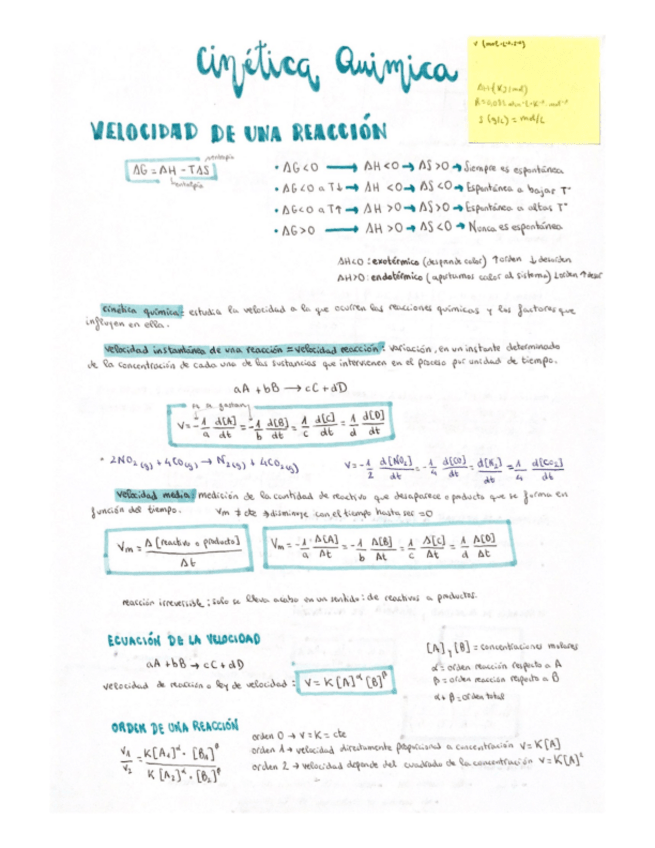 Cinética Química
v (mol·L⁻¹·s⁻¹)
ΔH (KJ/mol)
R=0,082 atm·L·K⁻¹·mol⁻¹
S (g/L) = mol/L
VELOCIDAD DE UNA REACCIÓN
entropía
ΔG = ΔH - TΔS
entalpía
• ΔG<0 → ΔH<0 → ΔS>0 → Siempre es espontánea
• ΔG<0 a T↓ → ΔH <0 → ΔS<0 → Espontánea a bajas Tª
• ΔG<0 a T↑ → ΔH >0 → ΔS>0 → Espontánea a altas Tª
• ΔG>0 → ΔH >0 → ΔS<0 → Nunca es espontánea
ΔH<0 : exotérmico (desprende calor) ↑orden ↓desorden
ΔH>0: endotérmico (aportamos calor al sistema) ↓orden ↑desor
cinética química: estudia la velocidad a la que ocurren las reacciones químicas y los factores que
influyen en ella.
velocidad instantánea de una reacción = velocidad reacción : variación, en un instante determinado
de la concentración de cada una de las sustancias que intervienen en el proceso por unidad de tiempo.
aA + bB → cC + dD
se gastan
V = -1/a d[A]/dt = -1/b d[B]/dt = 1/c d[C]/dt = 1/d d[D]/dt
• 2NO₂(g) + 4CO(g) → N₂(g) + 4CO₂(g) V = -1/2 d[NO₂]/dt = -1/4 d[CO]/dt = d[N₂]/dt = 1/4 d[CO₂]/dt
velocidad media: medición de la cantidad de reactivo que desaparece o producto que se forma en
función del tiempo. Vm ≠ cte → disminuye con el tiempo hasta ser =0
Vm = Δ[reactivo o producto]/Δt
Vm = -1/a · Δ[A]/Δt = -1/b Δ[B]/Δt = 1/c Δ[C]/Δt = 1/d Δ[D]/Δt
reacción irreversible: solo se lleva a cabo en un sentido: de reactivos a productos.
ECUACIÓN DE LA VELOCIDAD
aA + bB → cC + dD
velocidad de reacción o ley de velocidad : V = K[A]^α [B]^β
[A] y [B] = concentraciones molares
α = orden reacción respecto a A
β = orden reacción respecto a B
α + β = orden total
ORDEN DE UNA REACCIÓN
V₁/V₂ = K[A₁]^α · [B₁]^β / K[A₂]^α · [B₂]^β
orden 0 → V = K = cte
orden 1 → velocidad directamente proporcional a concentración V = K[A]
orden 2 → velocidad depende del cuadrado de la concentración V = K[A]²